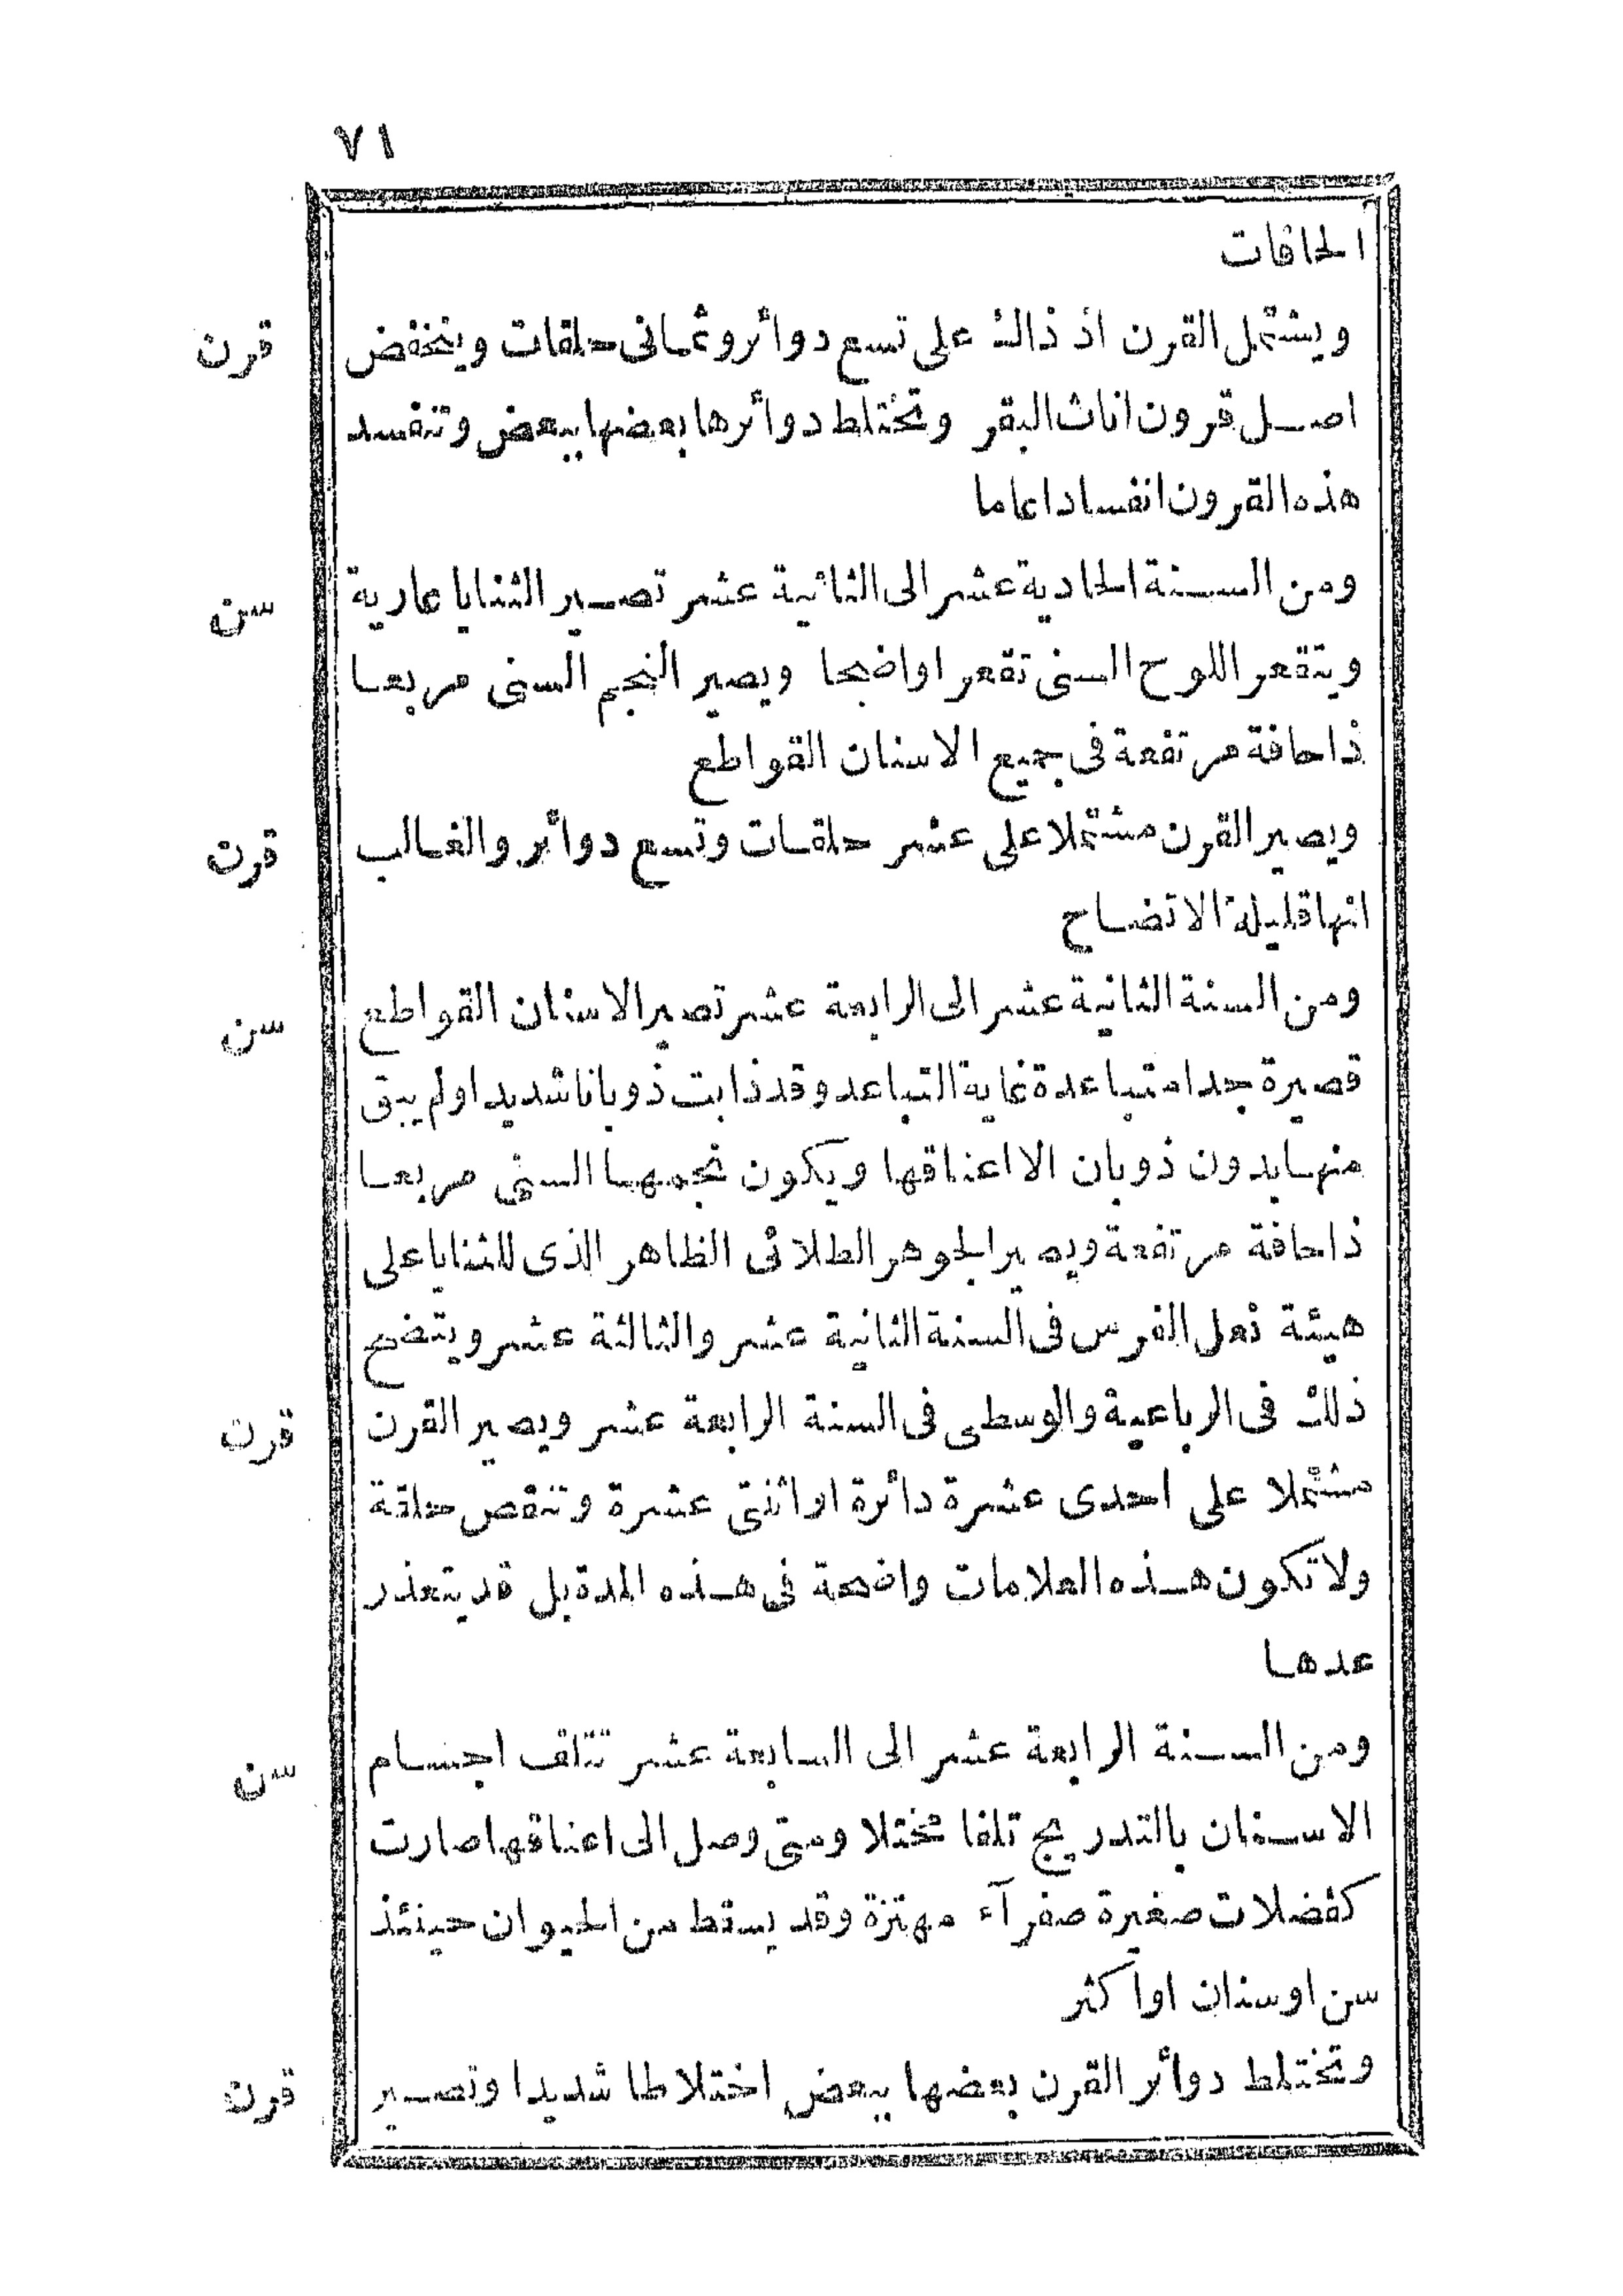 ٧١
الحافات
ويشتمل القرن اذ ذاك على تسع دوائر وثمانى حلقات وينخفض
قرن
اصل قرون اناث البقر وتختلط دوائرها بعضها ببعض وتنفسد
هذه القرون انفسادا عاما
ومن السنة الحادية عشر الى الثانية عشر تصير الثنايا عارية
سن
ويتقعر اللوح السنى تقعرا واضحا ويصير النجم السنى مربعا
ذا حافة مرتفعة فى جميع الاسنان القواطع
ويصير القرن مشتملا على عشر حلقات وتسع دوائر والغالب
قرن
انها قليلة الاتضاح
ومن السنة الثانية عشر الى الرابعة عشر تصير الاسنان القواطع
سن
قصيرة جدا متباعدة غاية التباعد وقد ذابت ذوبانا شديدا ولم يبق
منها بدون ذوبان الا اعناقها ويكون نجمها السنى مربعا
ذا حافة مرتفعة ويصير الجوهر الطلائى الظاهر الذى للثنايا على
هيئة نعل الفرس فى السنة الثانية عشر والثالثة عشر ويتضح
ذلك فى الرباعية والوسطى فى السنة الرابعة عشر ويصير القرن
قرن
مشتملا على احدى عشرة دائرة او اثنتى عشرة وتنقص حلقة
ولا تكون هذه العلامات واضحة فى هذه المدة بل قد يتعذر
عدها
ومن السنة الرابعة عشر الى السابعة عشر تتلف اجسام
سن
الاسنان بالتدريج تلفا مختلا ومتى وصل الى اعناقها صارت
كفضلات صغيرة صفرآء مهتزة وقد يسقط من الحيوان حينئذ
سن او سنان او اكثر
وتختلط دوائر القرن بعضها ببعض اختلاطا شديدا وتصير
قرن